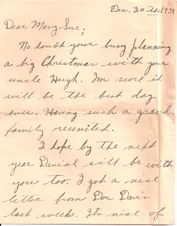 Dec. 20th. 1939
Dear Mary Sue,
No doubt your busy planning
a big Christmas with your
uncle Hugh. Im sure it
will be the best day
ever. Having such a grand
family reunited.
I hope by the next
year Denial will be with
you too. I got a nice
letter from Doc Davis
last week. Its nice of